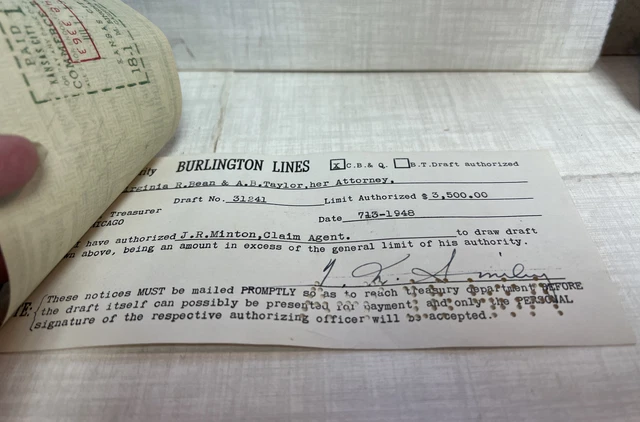 PAID
KANSAS CITY
COMMERCE
18-1
BURLINGTON LINES X C.B.& Q. B.T.Draft authorized
rginia R.Bean & A.B.Taylor,her Attorney.
Draft No. 31241 Limit Authorized $ 3,500.00
Treasurer
ICAGO Date 713-1948
have authorized J.R.Minton,Claim Agent. to draw draft
n above, being an amount in excess of the general limit of his authority.
These notices MUST be mailed PROMPTLY so as to reach treasury department BEFORE
the draft itself can possibly be presented for payment; and only the PERSONAL
signature of the respective authorizing officer will be accepted.